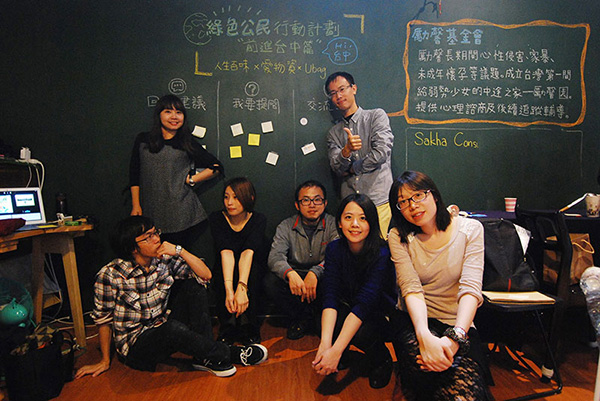 綠色公民行動計劃
"前進台中篇"
Hi,
台中
人生百味×愛物資×Ubag
建議
我要提問
交流
勵馨基金會
勵馨長期關心性侵害、家暴、
未成年懷孕等議題,成立台灣第一間
給弱勢少女的中途之家—勵馨園,
提供心理諮商及後續追蹤輔導。
Sakha Cons